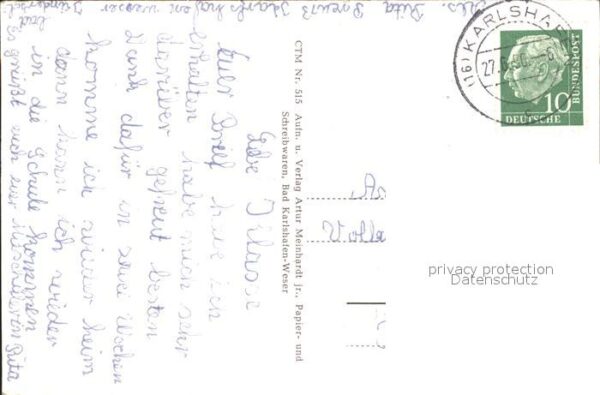 Abs. Rita
Karlshafen weser
bad
Kinder
Liebe Klasse
Euer Brief habe ich
erhalten habe mich sehr
darüber gefreut besten
Dank dafür in zwei Wochen
komme ich wieder heim
dann kann ich wieder
in die Schule kommen
Es grüßt euch eure Mitschülerin Rita
CTM Nr. 515 Aufn. u. Verlag Artur Meinhardt jr., Papier- und
Schreibwaren, Bad Karlshafen-Weser
(16) KARLSHA
27.
10
DEUTSCHE
BUNDESPOST
privacy protection
Datenschutz